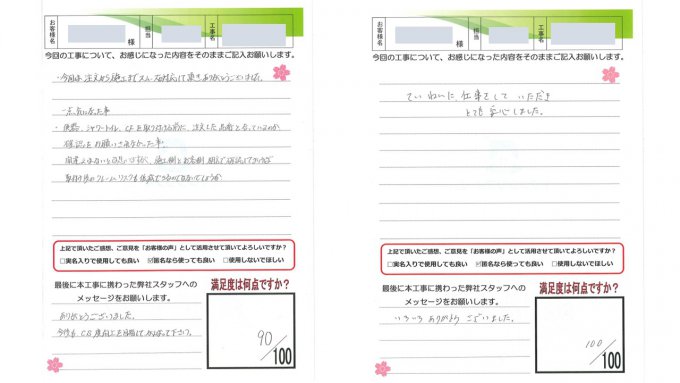 お客様名
様
担当
工事名
今回の工事について、お感じになった内容をそのままご記入お願いします。
・今回は注文から施工までスムーズに対応して頂きありがとうございます。
一点気になった事
・便器、シャワートイレ、CFを取り付ける前に、注文した品番と合っているのか
確認をお願いされなかった事。
間違えはないと思いますが、施工側とお客側 相互で確認しておけば
取付け後のクレームリスクも低減できるのではないでしょうか
上記で頂いたご感想、ご意見を「お客様の声」として活用させて頂いてよろしいですか?
□実名入りで使用しても良い ☑匿名なら使っても良い □使用しないでほしい
最後に本工事に携わった弊社スタッフへの
メッセージをお願いします。
ありがとうございました。
今後も CS度向上を目指してがんばって下さい。
満足度は何点ですか?
90/100
お客様名
様
担当
工事名
今回の工事について、お感じになった内容をそのままご記入お願いします。
ていねいに、仕事をして いただき
とても 安心しました。
上記で頂いたご感想、ご意見を「お客様の声」として活用させて頂いてよろしいですか?
□実名入りで使用しても良い ☑匿名なら使っても良い □使用しないでほしい
最後に本工事に携わった弊社スタッフへの
メッセージをお願いします。
いろいろ ありがとう ございました。
満足度は何点ですか?
100/100